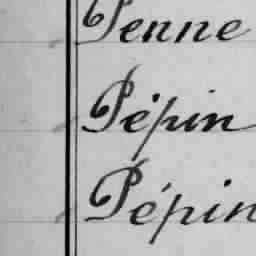 Penne
Pépin
Pépin